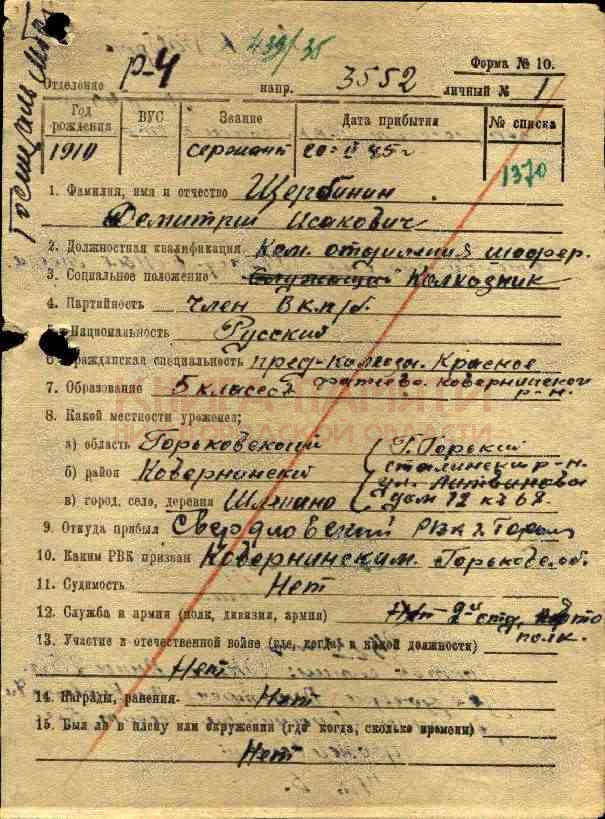 Госпиталь
439/35
Форма № 10.
Отделение Р-4 напр. 3552 личный № 1
Год рождения ВУС Звание Дата прибытия № списка
1910 сержант 20 45г 1370
1. Фамилия, имя и отчество Щербинин
Демитрий Исакович
2. Должностная квалификация Ком. отделения шофер.
3. Социальное положение Служащий Колхозник
4. Партийность член Вкп/б.
5. Национальность Русский
6. Гражданская специальность пред-колхоза. Красное
7. Образование 5 класса Фатеево. Ковернинского р-н.
8. Какой местности уроженец;
а) область Горьковский Г. Горький
б) район Ковернинский сталинский р-н.
в) город, село, деревня ул. Литвинова
дом 72 кв 68.
9. Откуда прибыл Свердловский РВК г. Горьк
10. Каким РВК призван Ковернинским. Горьков обл.
11. Судимость Нет
12. Служба в армии (полк, дивизия, армия) Нет 2й полк.
13. Участие в отечественной войне (где, когда, в какой должности)
Нет
14. Награды, ранения- Нет
15. Был ли в плену или окружении (где когда, сколько времени)
Нет
КНИГА ПАМЯТИ
ОБЛАСТИ